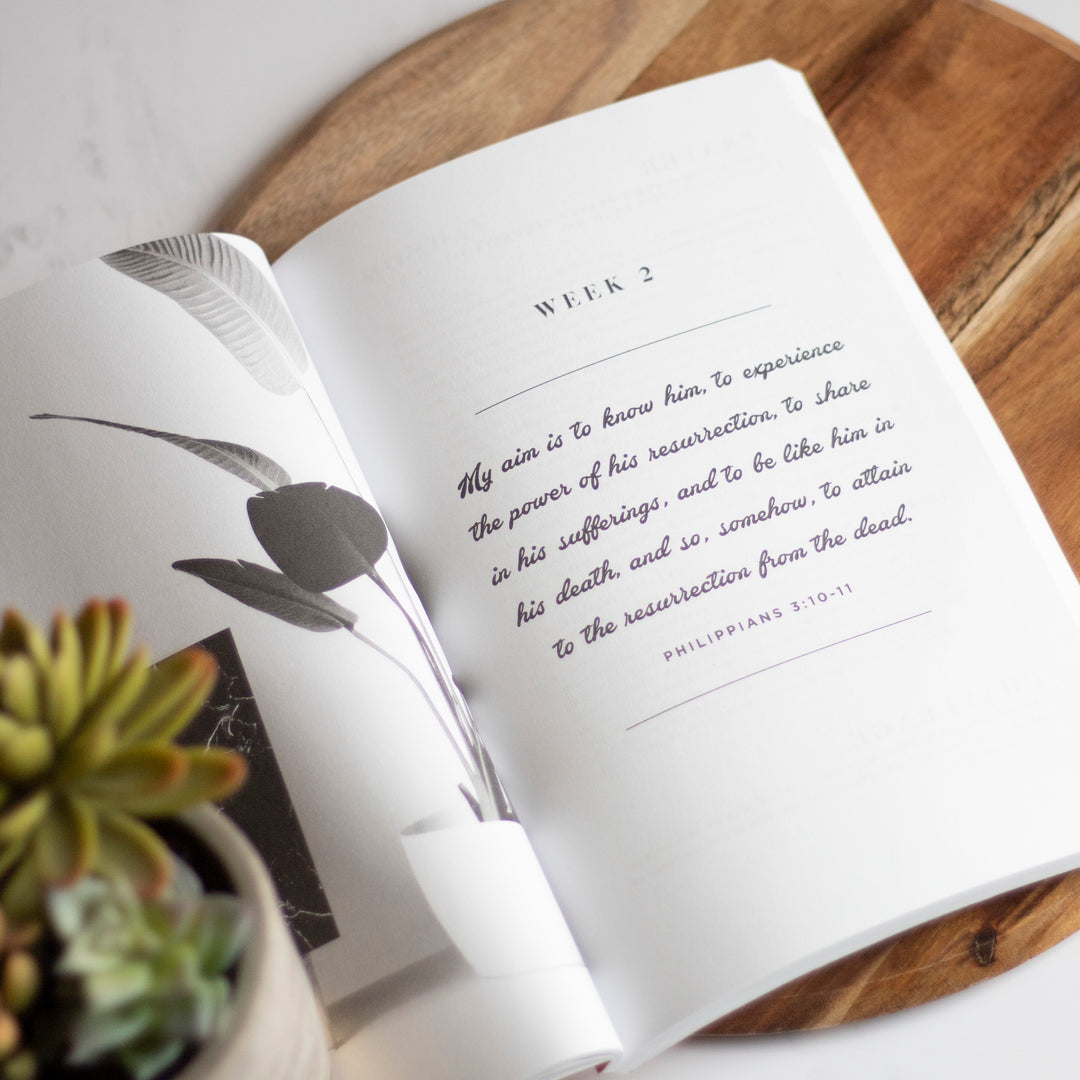 WEEK 2
My aim is to know him, to experience
the power of his resurrection, to share
in his sufferings, and to be like him in
his death, and so, somehow, to attain
to the resurrection from the dead.
PHILIPPIANS 3:10-11